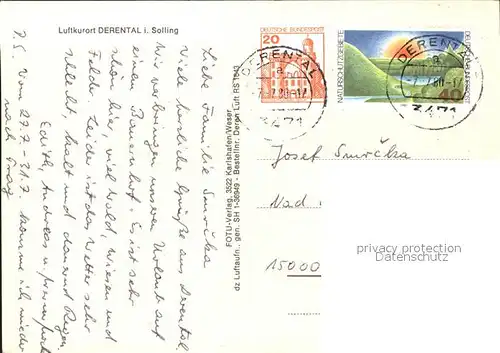 Luftkurort DERENTAL i. Solling
Liebe Familie Smrčka
Viele herzliche Grüße aus Derental.
Wir verbringen unseren Urlaub auf
einem Bauernhof. Es ist sehr
schön hier, viel Wald, Wiesen und
Felder. Leider ist das Wetter sehr
schlecht, kalt und dauernd Regen.
Edith, Andreas u.
PS Vom 29.7. - 31.7. komme ich wieder
nach Prag
FOTU-Verlag, 3522 Karlshafen/Weser
dz Luftaufn., gen. SH 1-36949 - Bestellnr. Deren Luft RS 1643
DEUTSCHE BUNDESPOST
20
NATURSCHUTZGEBIETE
DEUTSCHE BUNDESPOST
40
DERENTAL
a
3471
DERENTAL
a
3471
Josef Smrčka
Nad
15000
privacy protection
DELCAMPE